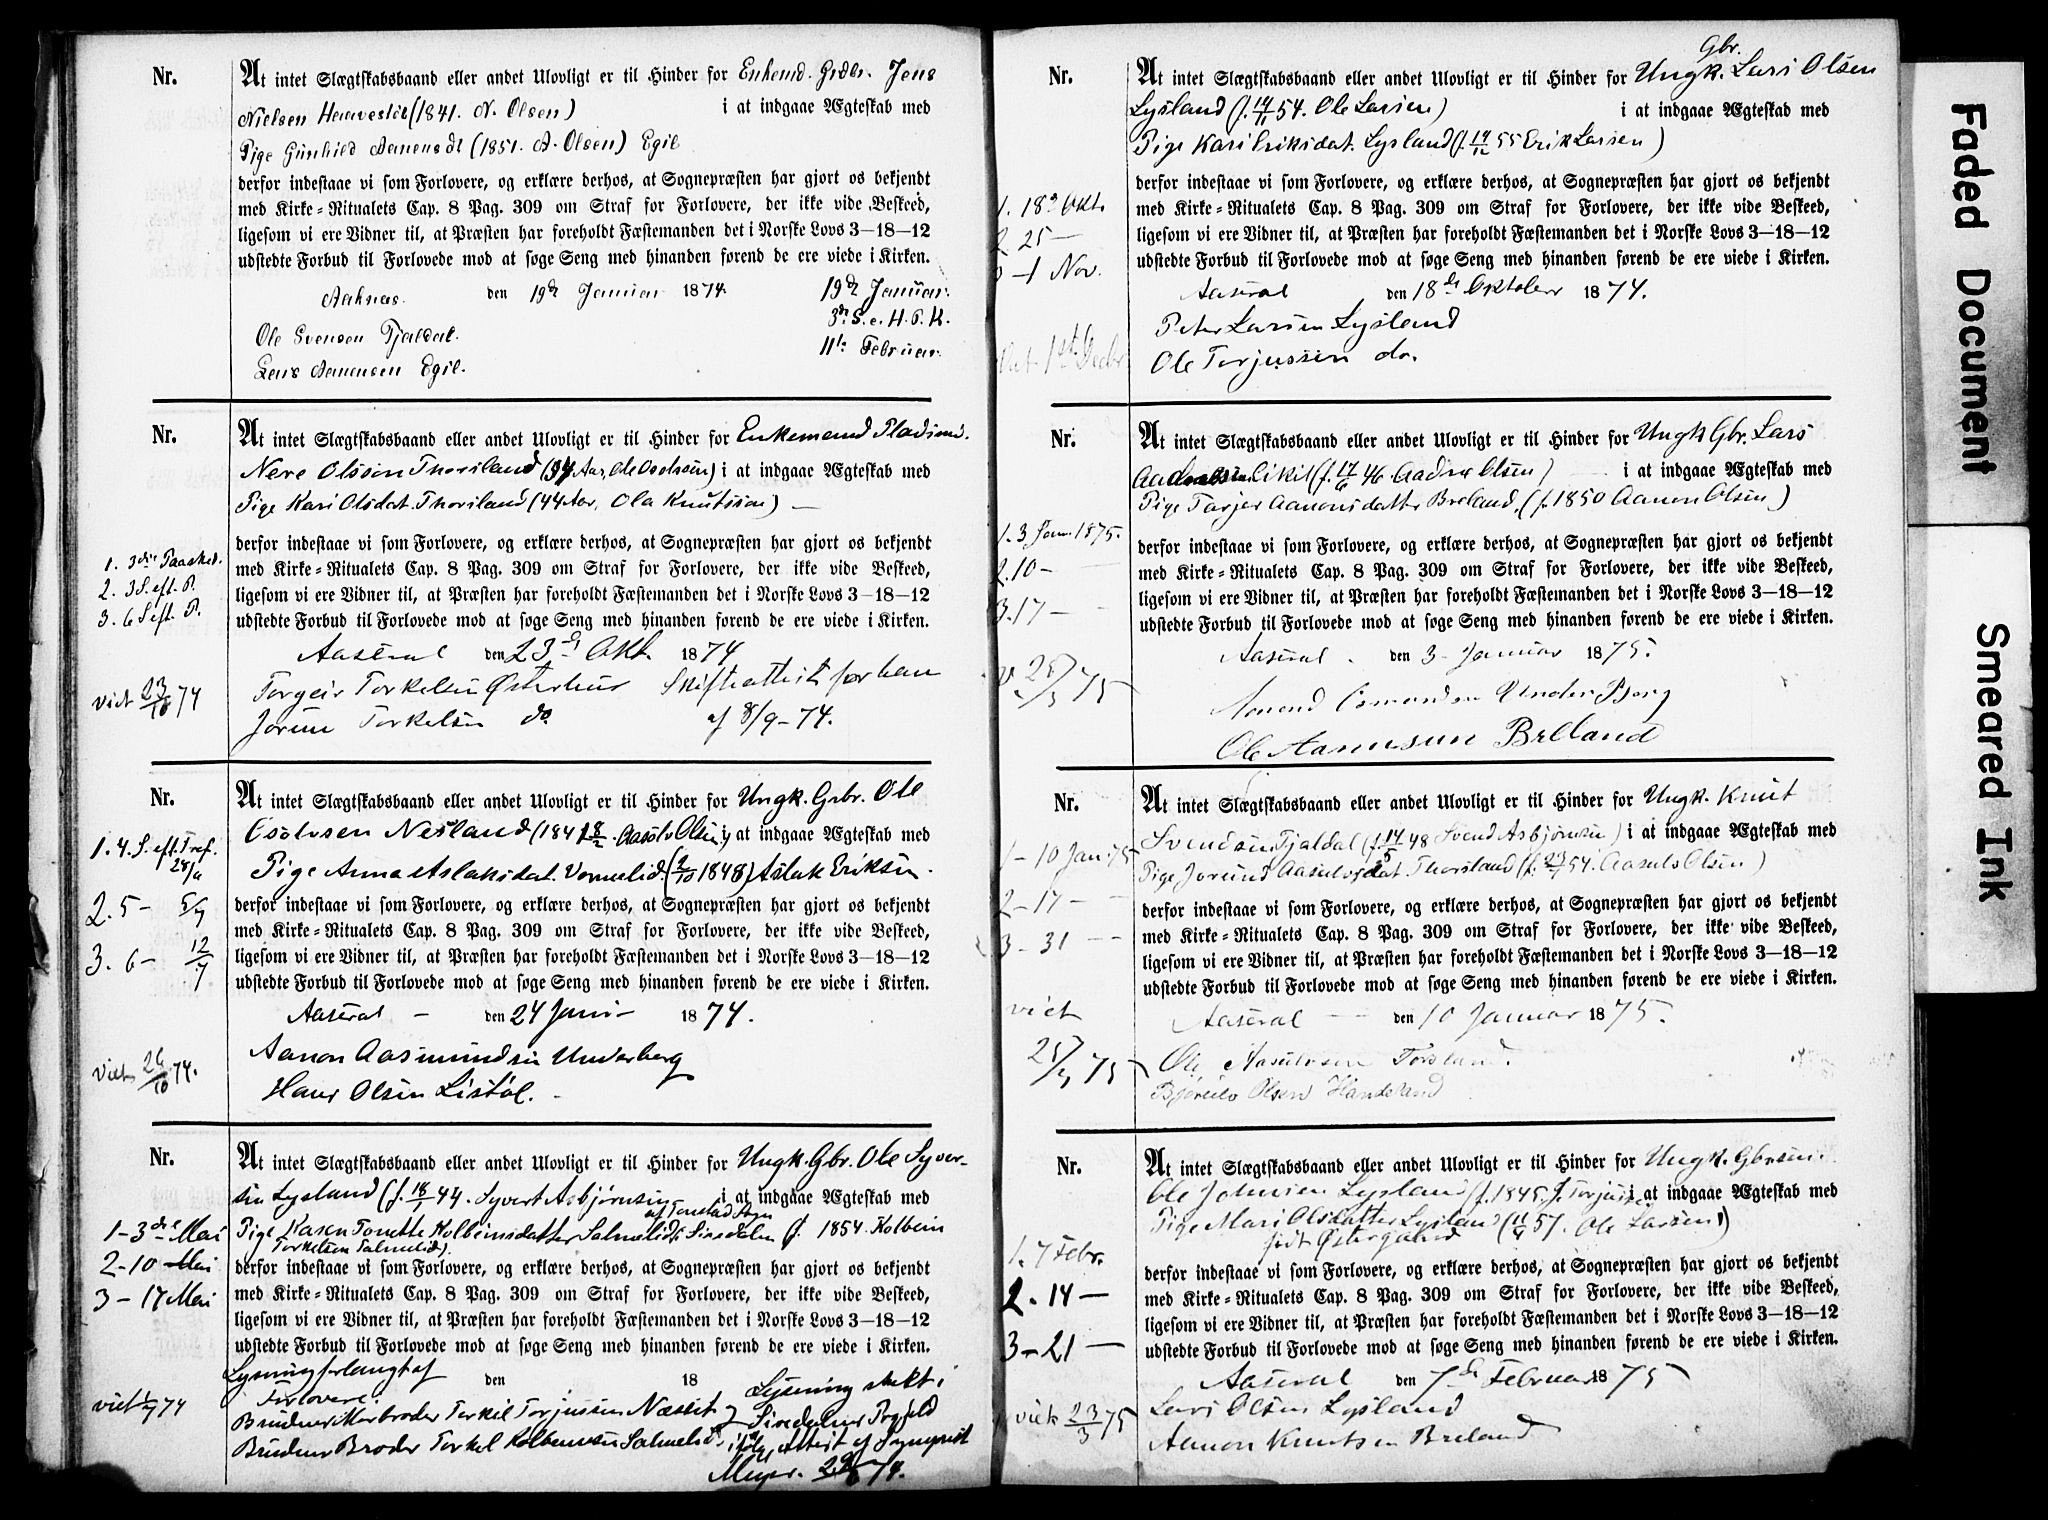 Nr.
At intet Slægtskabsbaand eller andet Ulovligt er til Hinder for Enkemd. Grdbr. Jens
Nielsen Haavestøl (1841. N. Olsen) i at indgaae Ægteskab med
Pige Gunhild Aanensdt (1851. A. Olsen) Egil
derfor indestaae vi som Forlovere, og erklære derhos, at Sognepræsten har gjort os bekjendt
med Kirke-Ritualets Cap. 8 Pag. 309 om Straf for Forlovere, der ikke vide Beskeed,
ligesom vi ere Vidner til, at Præsten har foreholdt Fæstemanden det i Norske Lovs 3—18—12
udstedte Forbud til Forlovede mod at søge Seng med hinanden førend de ere viede i Kirken.
Aaknes. den 19de Januar 1874. 19de Januar.
3die S. e. H. 3. K.
Ole Svensen Tjaldal. 11te Februar.
Lars Aanensen Egil.
Nr.
At intet Slægtskabsbaand eller andet Ulovligt er til Hinder for Enkemand Pladsmd.
Olsen Thorsland i at indgaae Ægteskab med
Pige Kari Olsdat. Thorsland (44 Aar, Ola Knutsson) —
derfor indestaae vi som Forlovere, og erklære derhos, at Sognepræsten har gjort os bekjendt
1. 3die Paasked.
med Kirke-Ritualets Cap. 8 Pag. 309 om Straf for Forlovere, der ikke vide Beskeed,
2. 3 S. eft. P.
ligesom vi ere Vidner til, at Præsten har foreholdt Fæstemanden det i Norske Lovs 3—18—12
3. 6 S eft. P.
udstedte Forbud til Forlovede mod at søge Seng med hinanden førend de ere viede i Kirken.
Aaseral den 23de Okt. 1874
viet 23/10 74 Torgeir Torkelsen Østerhus Skifteattest for ham
Jørun Torkelsen do. af 8/9-74.
Nr.
At intet Slægtskabsbaand eller andet Ulovligt er til Hinder for Ungk. Grbr. Ole
Nesland i at indgaae Ægteskab med
1. 4. S. eft. Tref. 28/6
Pige Anna Aslaksdat. Vormelid. (2/10 1848) Aslak Eriksen.
derfor indestaae vi som Forlovere, og erklære derhos, at Sognepræsten har gjort os bekjendt
2. 5 - 5/7
med Kirke-Ritualets Cap. 8 Pag. 309 om Straf for Forlovere, der ikke vide Beskeed,
3. 6 - 12/7
ligesom vi ere Vidner til, at Præsten har foreholdt Fæstemanden det i Norske Lovs 3—18—12
udstedte Forbud til Forlovede mod at søge Seng med hinanden førend de ere viede i Kirken.
Aaseral — den 24 Juni - 1874.
viet 26/10 74. Aanon Aasmundsen Underberg
Hans Olsen Listøl.
Nr.
At intet Slægtskabsbaand eller andet Ulovligt er til Hinder for Ungk. Gbr. Ole Syver-
sen Lysland (f. 18/1 44. Syvert Asbjørnsen i at indgaae Ægteskab med
af Tonstad Sogn
1 - 3die Mai Pige Karen Tonette Kolbeinsdatter Salmelid i Siredalen (f. 1854. Kolbein
Torkelsen Salmelid).
2 - 10 Mai derfor indestaae vi som Forlovere, og erklære derhos, at Sognepræsten har gjort os bekjendt
3 - 17 Mai med Kirke-Ritualets Cap. 8 Pag. 309 om Straf for Forlovere, der ikke vide Beskeed,
ligesom vi ere Vidner til, at Præsten har foreholdt Fæstemanden det i Norske Lovs 3—18—12
udstedte Forbud til Forlovede mod at søge Seng med hinanden førend de ere viede i Kirken.
Lysning forlangt af den 18 Lysning skekt i
Forlovere:
viet 1/7 74 Brudens Morbroder Torkil Torjussen Næsset Siredalens Prgjeld
Brudens Broder Torkel Kolbeinsen Salmelid ifølg. Attest af Sognepræst
Meyer. 29/6 74.
Nr.
Gbr.
At intet Slægtskabsbaand eller andet Ulovligt er til Hinder for Ungk. Lars Olsen
Lysland (f. 14/11 54. Ole Larsen) i at indgaae Ægteskab med
Pige Kari Eriksdat. Lysland (f. 14/12 55 Erik Larsen)
derfor indestaae vi som Forlovere, og erklære derhos, at Sognepræsten har gjort os bekjendt
1. 18de Okt.
med Kirke-Ritualets Cap. 8 Pag. 309 om Straf for Forlovere, der ikke vide Beskeed,
2 25 —
ligesom vi ere Vidner til, at Præsten har foreholdt Fæstemanden det i Norske Lovs 3—18—12
- 1 Nov.
udstedte Forbud til Forlovede mod at søge Seng med hinanden førend de ere viede i Kirken.
Aaseral den 18de Oktober 1874.
Peter Larsen Lysland
1ste Decbr
Ole Torjussen do.
Nr.
At intet Slægtskabsbaand eller andet Ulovligt er til Hinder for Ungk Gbr. Lars
(f. 17/6 46 Olsen) i at indgaae Ægteskab med
Pige Torjer Aanonsdatter Breland, (f. 1850 Aanon Olsen)
1. 3 Jan. 1875.
derfor indestaae vi som Forlovere, og erklære derhos, at Sognepræsten har gjort os bekjendt
2. 10 -
med Kirke-Ritualets Cap. 8 Pag. 309 om Straf for Forlovere, der ikke vide Beskeed,
3. 17 -
ligesom vi ere Vidner til, at Præsten har foreholdt Fæstemanden det i Norske Lovs 3—18—12
udstedte Forbud til Forlovede mod at søge Seng med hinanden førend de ere viede i Kirken.
Aaseral . den 3 - Januar 1875.
75
Osmundsen Underbjerg
Ole Aanonsen Breland
Nr.
At intet Slægtskabsbaand eller andet Ulovligt er til Hinder for Ungk. Knut
Svendsen Tjaldal (f. 14/5 48 Svend Asbjørnsen) i at indgaae Ægteskab med
1 - 10 Jan. 75
Pige Jorund Aasulvsdat. Thorsland (f. 54. Aasulv Olsen)
2 - 17 -
derfor indestaae vi som Forlovere, og erklære derhos, at Sognepræsten har gjort os bekjendt
3 - 31 —
med Kirke-Ritualets Cap. 8 Pag. 309 om Straf for Forlovere, der ikke vide Beskeed,
ligesom vi ere Vidner til, at Præsten har foreholdt Fæstemanden det i Norske Lovs 3—18—12
udstedte Forbud til Forlovede mod at søge Seng med hinanden førend de ere viede i Kirken.
viet
Aaseral — den 10 Januar 1875.
75
Ole Aasulvsen Torsland.
Bjørulv Olsen Handeland
Nr.
At intet Slægtskabsbaand eller andet Ulovligt er til Hinder for Ungk. Gbrsøn
Ole Johnsen Lysland (f. 1845. J. Torjus) i at indgaae Ægteskab med
Pige Mari Olsdatter Lysland (11/4 51. Ole Larsen)
født Østergaard
1. 7 Febr.
derfor indestaae vi som Forlovere, og erklære derhos, at Sognepræsten har gjort os bekjendt
2. 14 —
med Kirke-Ritualets Cap. 8 Pag. 309 om Straf for Forlovere, der ikke vide Beskeed,
3 - 21 —
ligesom vi ere Vidner til, at Præsten har foreholdt Fæstemanden det i Norske Lovs 3—18—12
udstedte Forbud til Forlovede mod at søge Seng med hinanden førend de ere viede i Kirken.
Aaseral den 7de Februar 1875
viet 23/3 75 Lars Olsen Lysland
Aanon Knutsen Breland
Faded Document
Smeared Ink